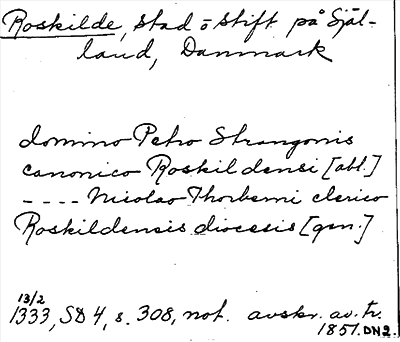 Roskilde, stad o stift på Själ-
land, Danmark
domino Petro Strangonis
canonico Roskildensi [abl.]
---- Nicolao Thorberni clerico
Roskildensis diocesis [gen.]
13/2
1333, SD 4, s. 308, not. avskr. av tr.
1851. DN2.